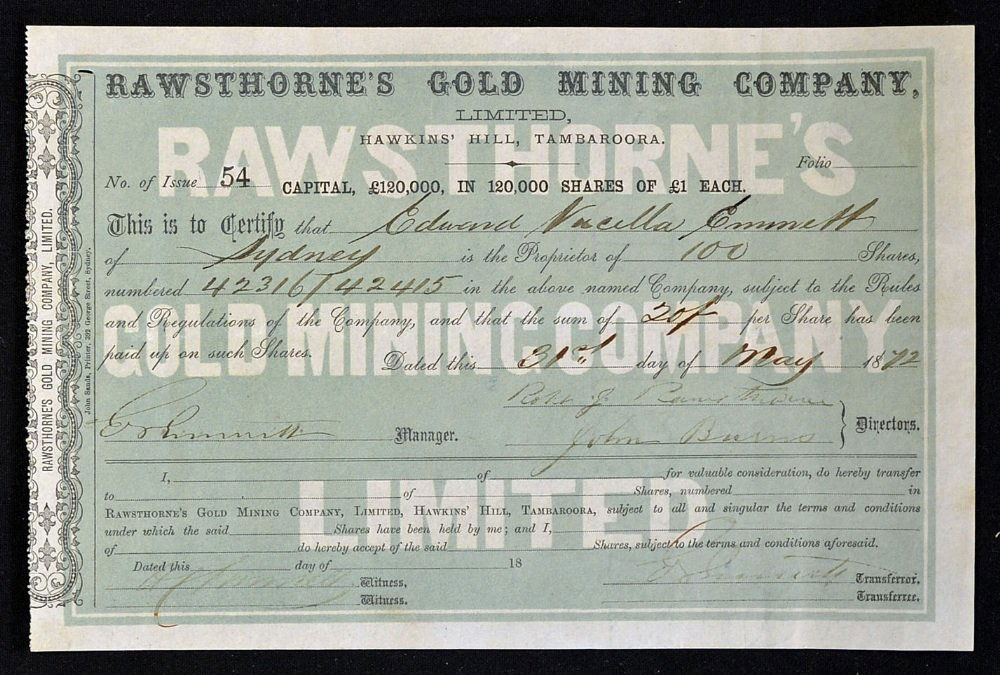 RAWSTHORNE'S GOLD MINING COMPANY,
LIMITED,
HAWKINS' HILL, TAMBAROORA.
Folio
No. of Issue 54 CAPITAL, £120,000, IN 120,000 SHARES OF £1 EACH.
This is to Certify that Edward Emmett
of Sydney is the Proprietor of 100 Shares,
numbered 42316/42415 in the above named Company, subject to the Rules
and Regulations of the Company, and that the sum of 20/ per Share has been
paid up on such Shares. Dated this 31st day of May 1872
Robt J Rawsthorne
Emmett Manager. John Burns Directors.
I, of for valuable consideration, do hereby transfer
to of Shares, numbered in
RAWSTHORNE'S GOLD MINING COMPANY, LIMITED, HAWKINS' HILL, TAMBAROORA, subject to all and singular the terms and conditions
under which the said Shares have been held by me; and I,
of do hereby accept of the said Shares, subject to the terms and conditions aforesaid.
Dated this day of 18
Witness, Emmett Transferror.
Witness. Transferree.
RAWSTHORNE'S
GOLD MINING COMPANY
LIMITED
RAWSTHORNE'S GOLD MINING COMPANY, LIMITED.
John Sands, Printer, 392 George Street, Sydney.